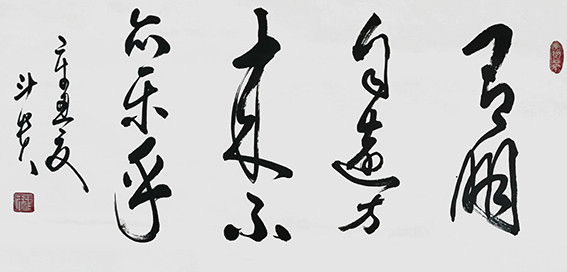 有朋
自遠方
来不
亦乐乎
辛丑夏
斗